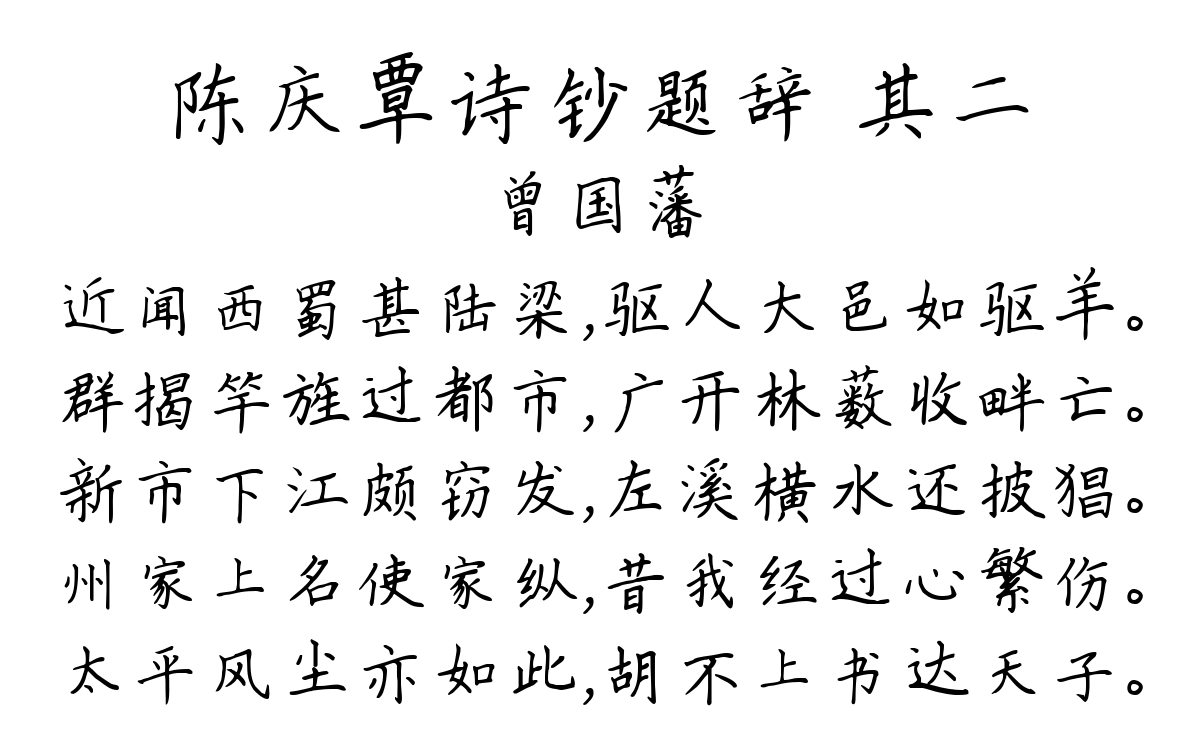 陈庆覃诗钞题辞 其二
曾国藩
近闻西蜀甚陆梁,驱人大邑如驱羊。
群揭竿旌过都市,广开林薮收畔亡。
新市下江颇窃发,左溪横水还披猖。
州家上名使家纵,昔我经过心繁伤。
太平风尘亦如此,胡不上书达天子。